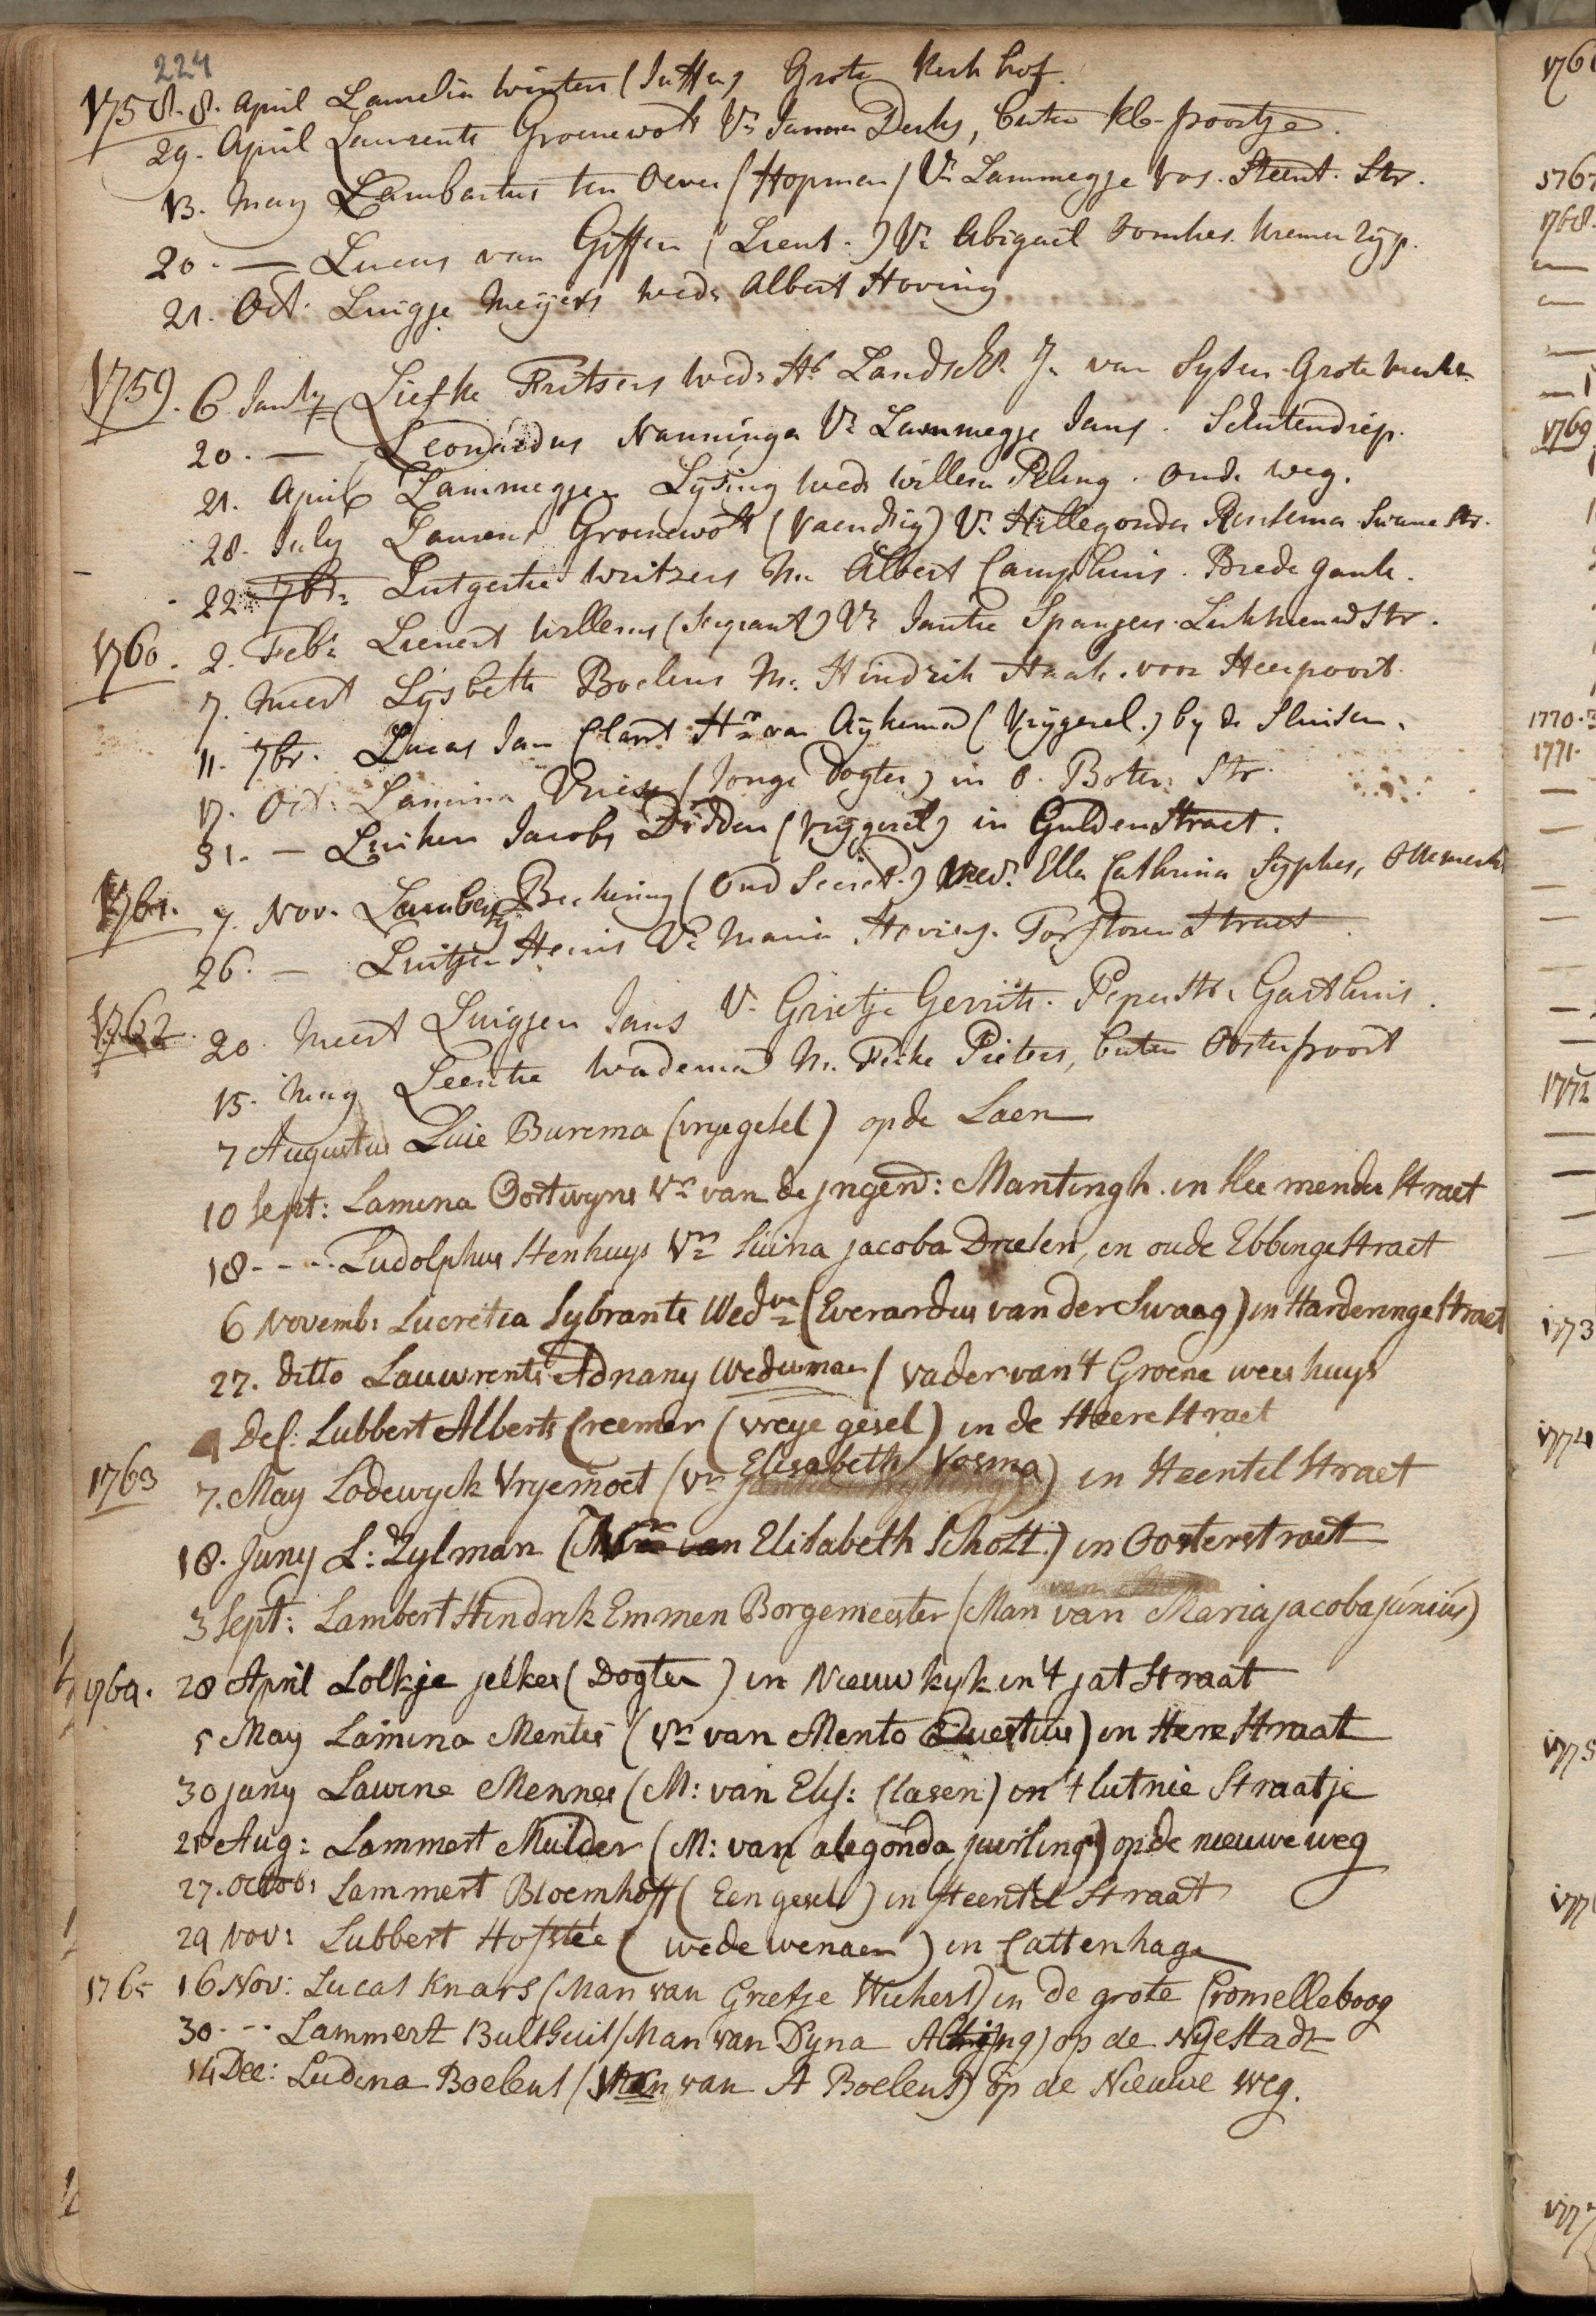 224
1758. 8. April Lamelia Winters (Juffer) Grote Kerk hof.
29. April Laurents Groenewolt Vr Janna Derks, buten kl-poortje.
13. May Lambartus ten Oever (Hopman) Vr Lammegje Vos. Steent. Str.
20. — Lucas van Giffen (Lieut.) Vr Abigail Tomkes. Kremer ryp.
21. Oct. Luigje Meijers wed: Albert Hoving
1759. 6 Janry Liefke Fritsers wed: Landsch J. van Sysen Grote Merkt
20. — Leonardus Nanninga Vr Lammegje Jans. Schutendiep.
21. April Lammegjen Lysing wed: Willem Peling. Oude weg.
28. July Laurens Groenewolt (Vaendrig) Vr Hillegonda Rensema Swane Str.
22. 7br. Lutgertie Writzers M. Albert Camphuis. Brede gank.
1760. 2. Feb: Lienert Willems (Sergeant) Vr Jantie Spanjers. Str.
7. Meert Lysbeth Boelens M. Hindrik Haak. voor Heerpoort.
11. 7br. Lucas Jan Clant Hr van Aykema (Vrijgesel.) by de Sluisen.
17. Oct. Lamina Vriese (Jonge Dogter) in O. Boter. Str.
31. — Luiken Jacobs Didden (Vrijgesel) in Guldenstraet.
1761. 7. Nov. Lamberty Beckering (Oud Secret.) Wed. Ella Cathrina Sypkes, Ossemerkt
26. — Luitjen Heins Vr Maria Hoving. Torfstouwstraet.
1762. 20. Meert Luigjen Jans V. Grietje Gerrits. Peperstr. Gasthuis.
15. May Leentie Wadema M. Feike Pieters, buten Oosterpoort
7 Augustus Luie Burema (vryegesel) op de Laen
10 Sept: Lamina Oostwyns Vr van de jngen: Mantingh. in Hee menda Straet
18 - - - Ludolphus Stenhuys Vr Siuina jacoba Drielen, in oude Ebbingestraet
6 Novemb: Lucretia Sybrants Wedwe (Everardus van der Swaag) in Harderingestraet
27. ditto Lauwrents Adriany Wedewman / vader van 't Groene weeshuys
4 Des: Lubbert Alberts Creemer (vreye gesel) in de Heerestraet
1763 7. May Lodewyck Vryemoet (Vr Elisabeth Vosma) in Steentil Straet
18. Juny L: Zylman (M van Elisabeth Schott) in Oosterstraet
3 Sept: Lambert Hindrik Emmen Borgemeester (Man van Maria jacoba junius)
1764. 28 April Lolkje jelkes (Dogter) in Nieuw kyk in 't jat Straat
5 May Lamina Mentes (Vr van Mento Questius) in Here Straat
30 juny Lawine Mennes (M: van Elis: Clasen) in 't lutnie Straatje
28 Aug: Lammert Mulder (M: van alegonda juurlings) op de nieuwe weg
27. Octob: Lammert Bloemhoff (Een gesel) in steentil Straat
29 Nov: Lubbert Hofstee (wedewenaer) in Cattenhage
1765 16 Nov: Lucas Knars (Man van Grietje Wichers) in de grote Cromelleboog
30 - - Lammert Bulthuis (Man van Dyna Alting) op de Nyestadt
14 Dec: Ludina Boelens (Vr van A Boelens) op de Nieuwe Weg.
1767
1768.
1769
1770. 3
1771.
1772
1773
1774
1775